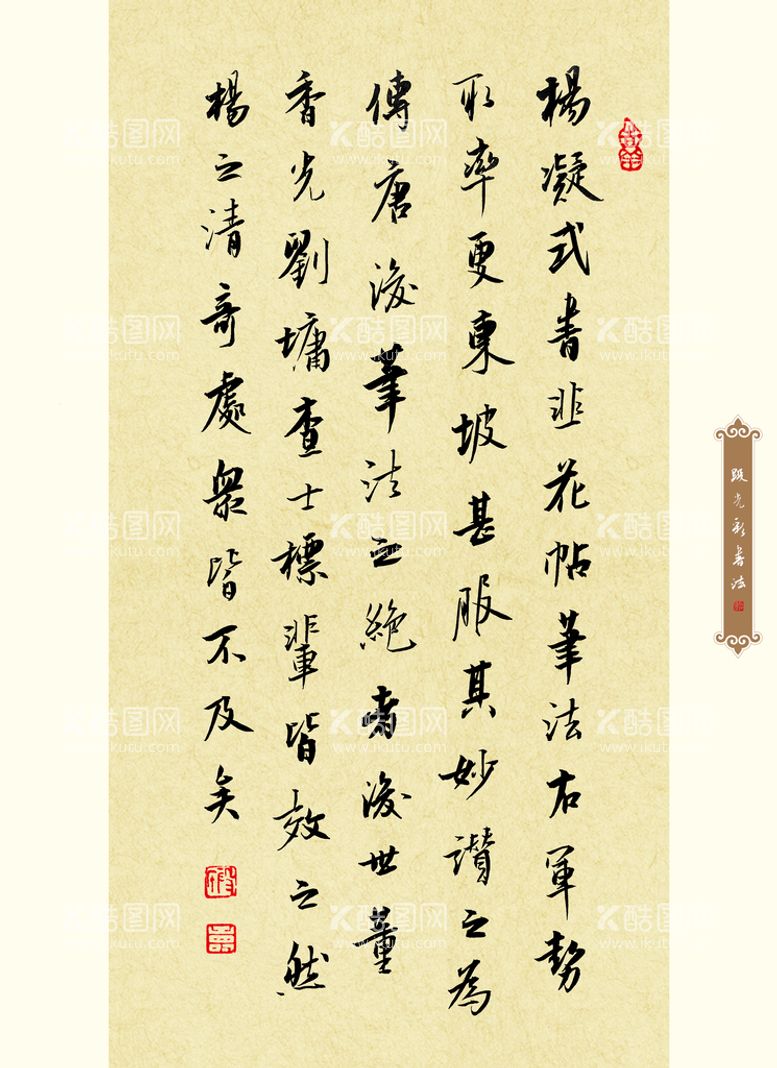 楊凝式書韭花帖筆法右軍勢
取率更東坡甚服其妙讚之為
傳唐後筆法之絕者後世董
香光劉墉查士標輩皆效之然
楊之清奇處眾皆不及矣
段光彩書法
酷图网
www.ikutu.com